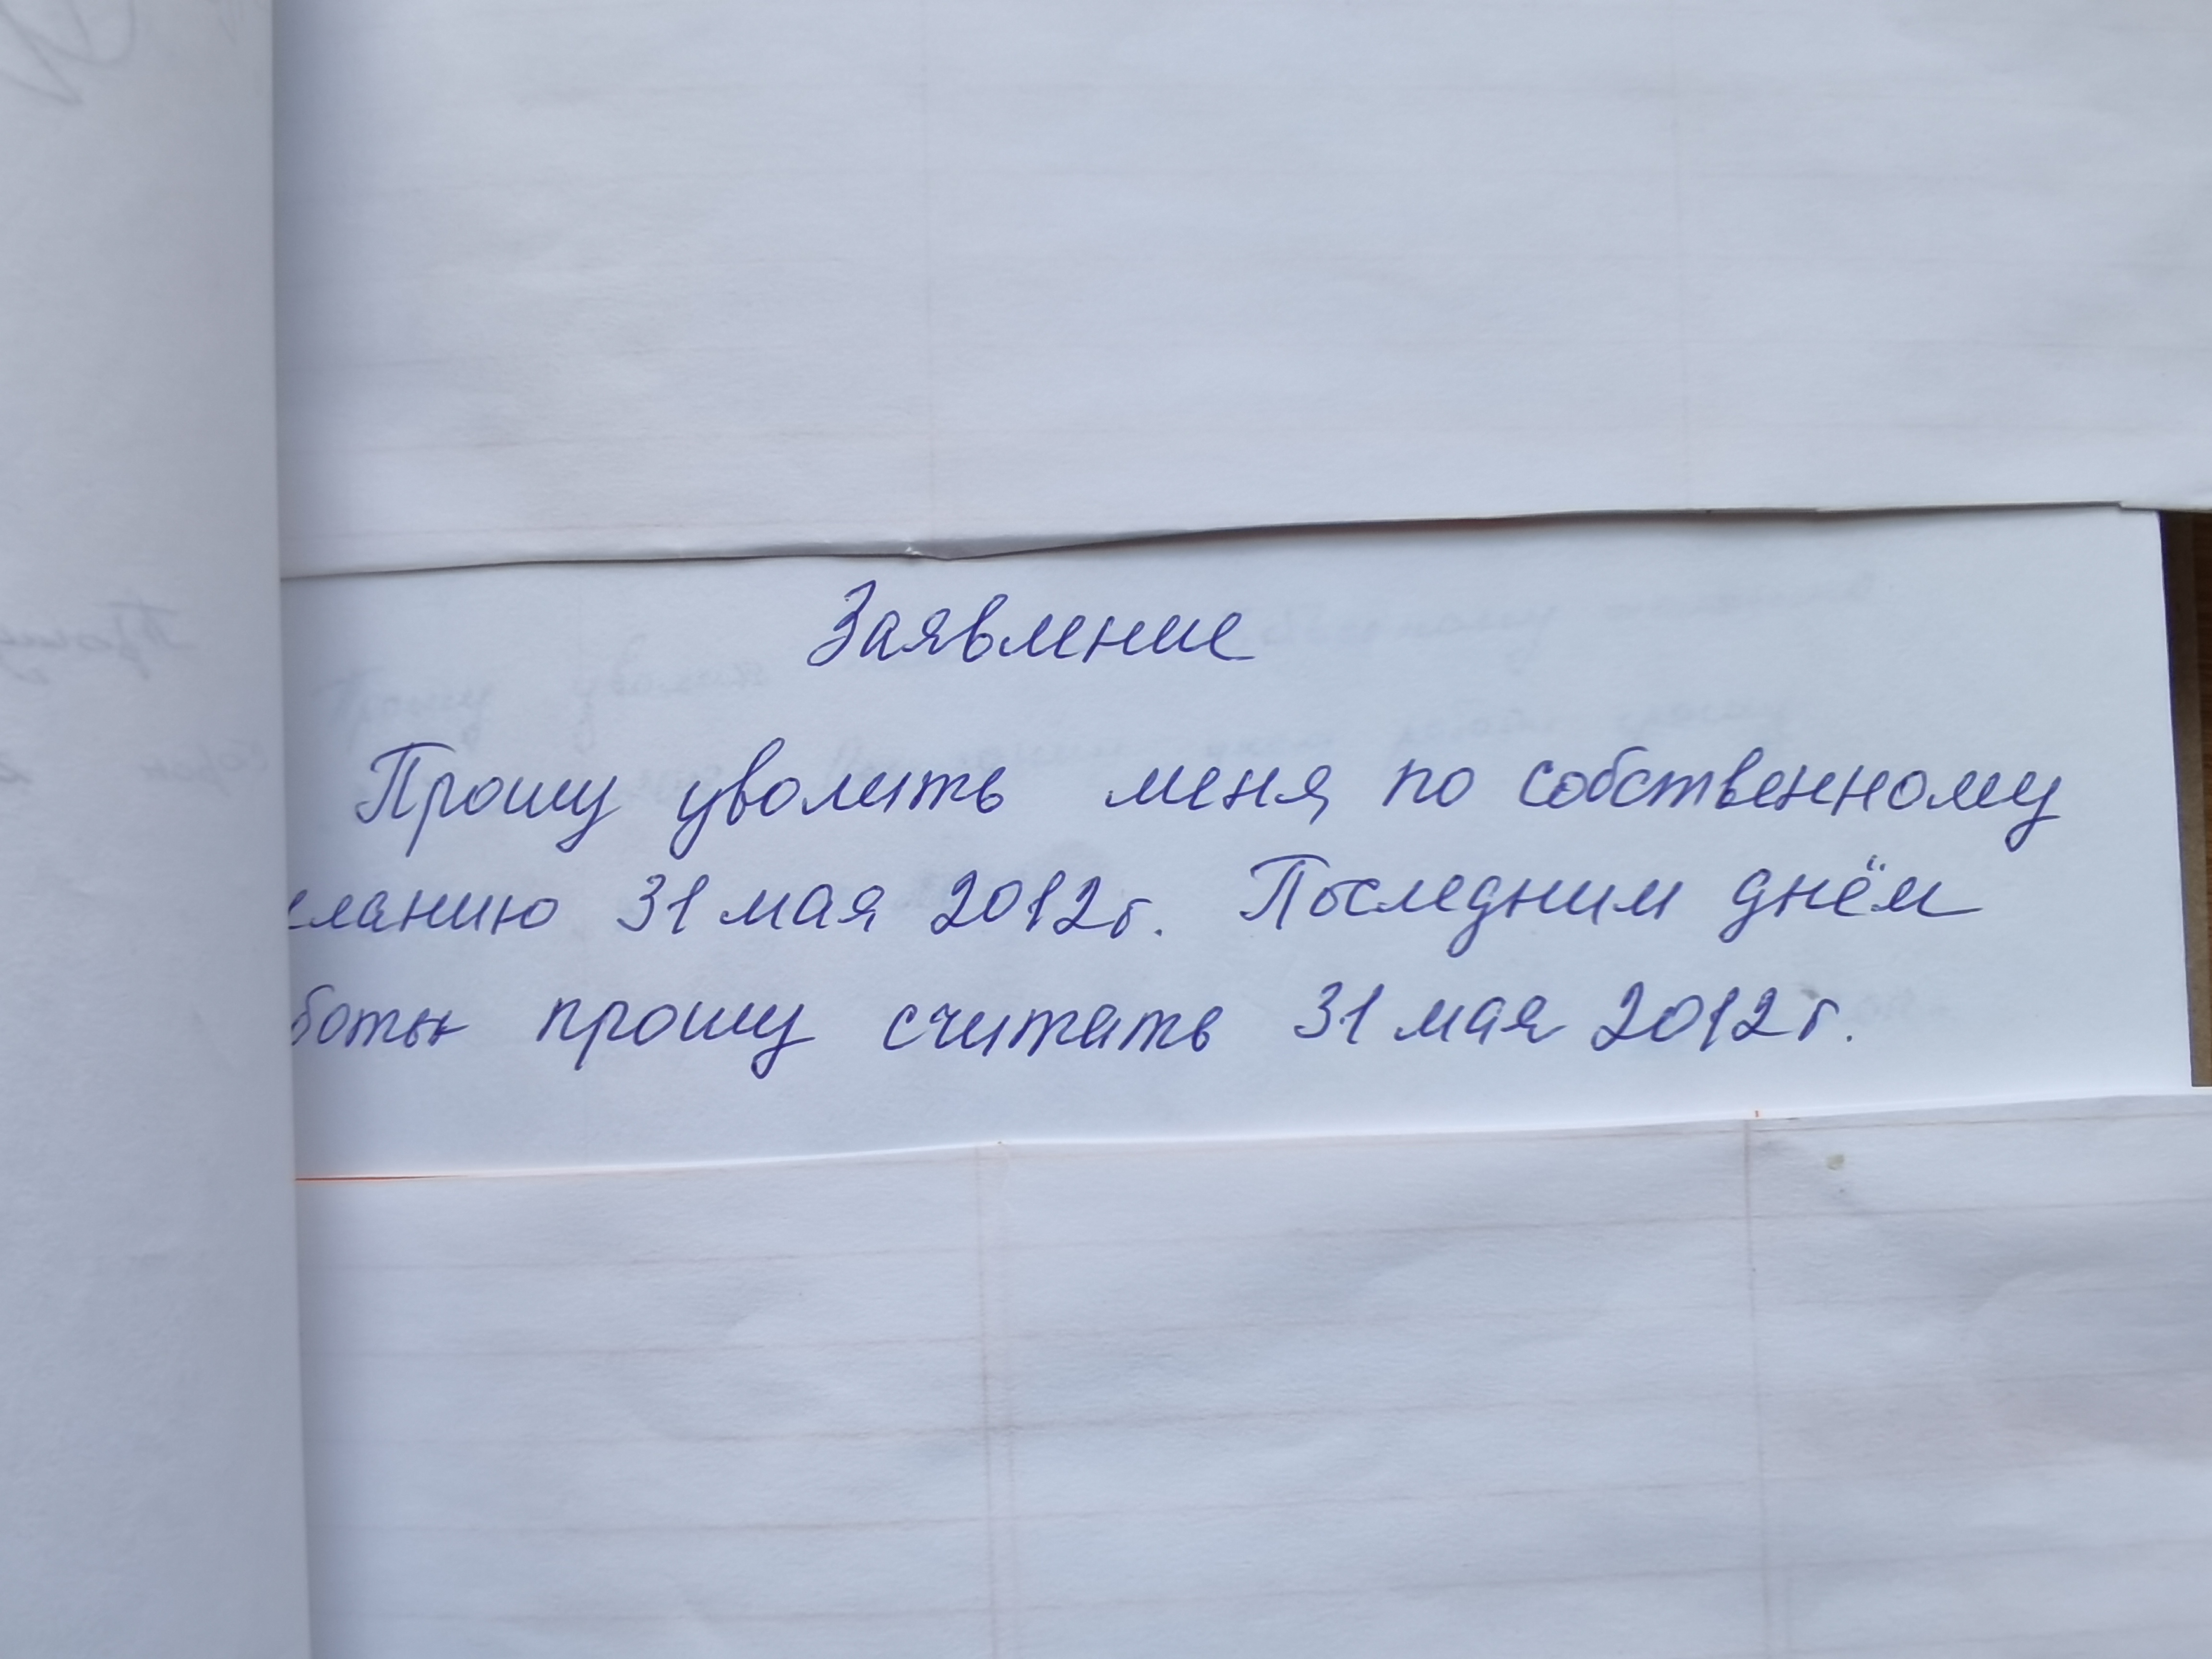 Заявление
Прошу уволить меня по собственному
еланию 31 мая 2012г. Последним днём
боты прошу считать 31 мая 2012г.